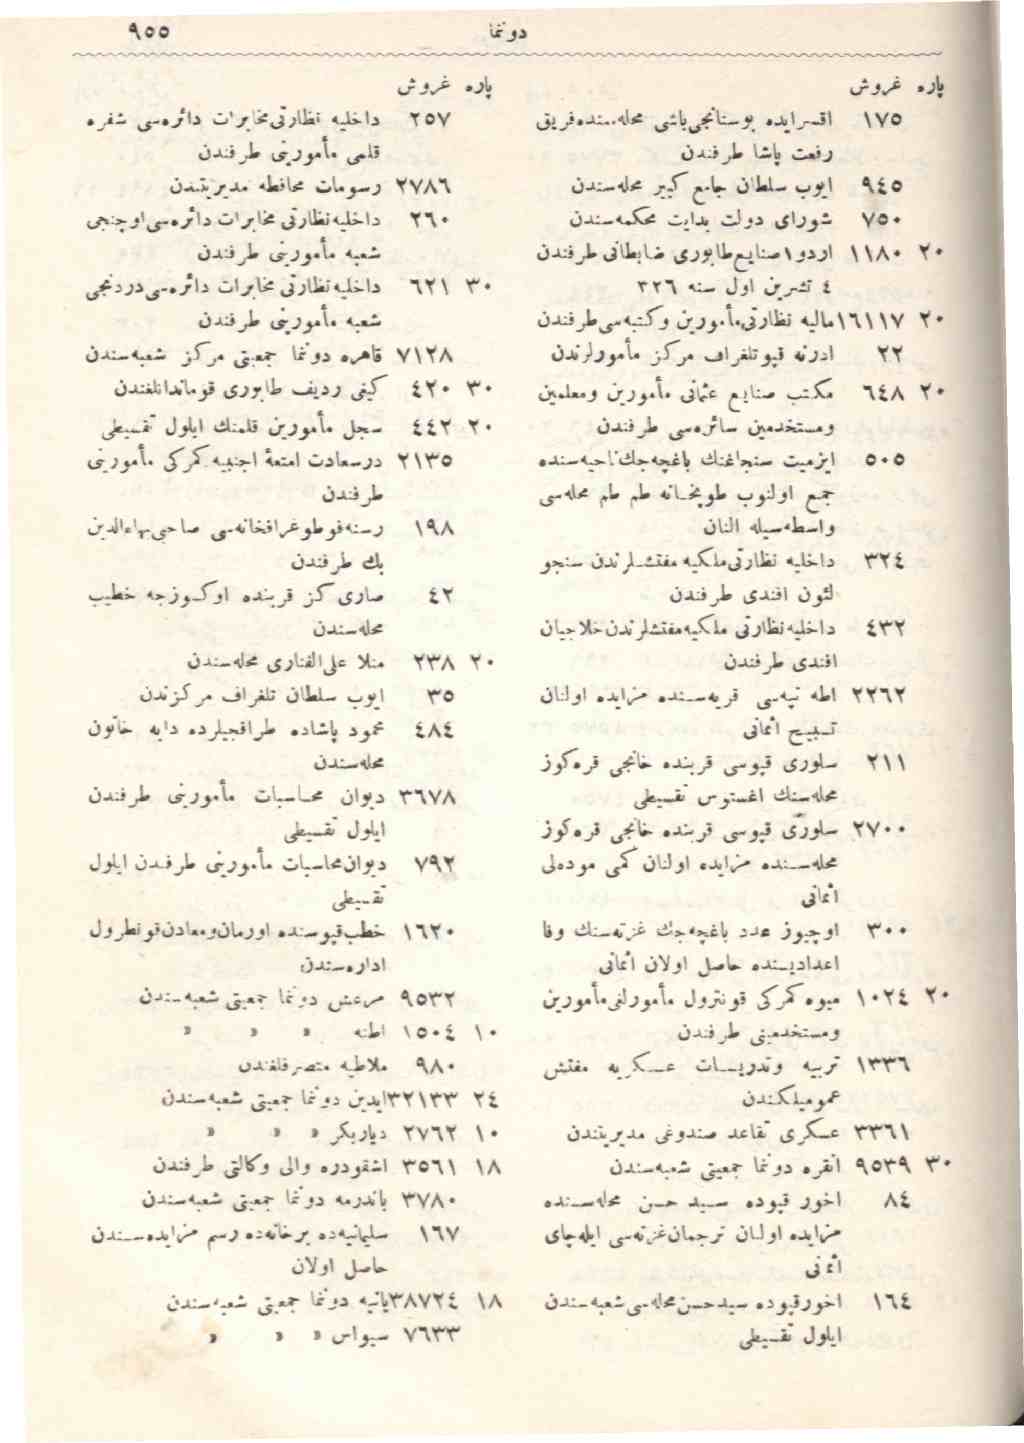 دوننما ٩٥٥
پاره غروش
١٧٥ اقسرایده بوستانجی‌باشی محله‌سنده‌فریق
رفعت پاشا طرفندن
٩٤٥ ایوب سلطان جامع کبیر محله‌سندن
٧٥٠ شورای دولت بدایت محکمه‌سندن
٢٠ ١١٨٠ اردو ١ صنایع‌طابوری ضابطانی طرفندن
٤ تشرین اول سنه ٣٢٦
٢٠ ١٦١١٧ مالیه نظارتی‌مأمورین وکتبه‌سی‌طرفندن
٢٢ ادرنه قپوتلغراف مرکز مأمورلرندن
٢٠ ٦٤٨ مکتب صنایع عثمانی مأمورین ومعلمین
ومستخدمین سائره‌سی طرفندن
٥٠٥ ایزمیت سنجاغنك باغچه‌جك‌ناحیه‌سنده
جمع اولنوب طوپخانه طم طم محله‌سی
واسطه‌سیله النان
٣٢٤ داخلیه نظارتی‌ملکیه مفتشلرندن سنجو
لئون افندی طرفندن
٤٣٢ داخلیه‌نظارتی ملکیه‌مفتشلرندن‌خلاجیان
افندی طرفندن
٢٢٦٢ اطه تپه‌سی قریه‌سنده مزایده اولنان
تسبیح اثمانی
٢١١ سلوری قپوسی قربنده خانجی قره‌کوز
محله‌سنك اغستوس تقسیطی
٢٧٠٠ سلوری قپوسی قربنده خانجی قره‌کوز
محله‌سنده مزایده اولنان کمی موده‌لی
اثمانی
٣٠٠ اوچیوز عدد باغچه‌جك غزته‌سنك وفا
اعدادیسنده حاصل اولان اثمانی
٢٠ ١٠٢٤ میوه کمرکی قونترول مأمورلغی‌مأمورین
ومستخدمینی طرفندن
١٣٣٦ تربیه وتدریسات عسکریه مفتش
عمومیلکندن
٣٣٦١ عسکری تقاعد صندوغی مدیریتندن
٣٠ ٩٥٣٩ انقره دوننما جمعیتی شعبه‌سندن
٨٤ اخور قپوده سید حسن محله‌سنده
مزایده اولنان ترجمان‌غزته‌سی ایله‌چای
اثمانی
١٦٤ اخورقپوده سیدحسن‌محله‌سی‌شعبه‌سندن
ایلول تقسیطی
پاره غروش
٢٥٧ داخلیه نظارتی‌مخابرات دائره‌سی شفره
قلمی مأمورینی طرفندن
٢٧٨٦ رسومات محافظه مدیریتندن
٢٦٠ داخلیه‌نظارتی مخابرات دائره‌سی‌اوچنجی
شعبه مأمورینی طرفندن
٣٠ ٦٢١ داخلیه‌نظارتی مخابرات دائره‌سی‌دردنجی
شعبه مأمورینی طرفندن
٧١٢٨ قاهره دوننما جمعیتی مرکز شعبه‌سندن
٣٠ ٤٢٠ کیفی ردیف طابوری قوماندانلغندن
٢٠ ٤٤٢ سجل مأمورین قلمنك ایلول تقسیطی
٢١٣٥ درسعادت امتعهٔ اجنبیه کمرکی مأمورینی
طرفندن
١٩٨ رسنه‌فوطوغرافخانه‌سی صاحبی‌بهاءالدین
بك طرفندن
٤٢ صاری کز قربنده اوکسوزجه خطیب
محله‌سندن
٢٠ ٢٣٨ منلا علی‌الفناری محله‌سندن
٣٥ ایوب سلطان تلغراف مرکزندن
٤٨٤ محمود پاشاده طراقجیلرده دایه خاتون
محله‌سندن
٣٦٧٨ دیوان محاسبات مأمورینی طرفندن
ایلول تقسیطی
٧٩٢ دیوان‌محاسبات مأمورینی طرفندن ایلول
تقسیطی
١٦٢٠ خطب‌قپوسنده اورمان‌ومعادن‌قونطرول
اداره‌سندن
٩٥٣٢ مرعش دوننما جمعیتی شعبه‌سندن
١٠ ١٥٠٤ اطنه » » »
٩٨٠ ملاطیه متصرفلغندن
٢٤ ٣٢١٣٣ ایدین دوننما جمعیتی شعبه‌سندن
١٠ ٢٧٦٢ دیاربکر » » »
١٨ ٣٥٦١ اشقودره والی وکالتی طرفندن
٣٧٨٠ باندرمه دوننما جمعیتی شعبه‌سندن
١٦٧ سلیمانیه‌ده برخانه‌ده رسم مزایده‌سندن
حاصل اولان
١٨ ٣٨٧٢٤ یانیه دوننما جمعیتی شعبه‌سندن
٧٦٣٣ سیواس » » »